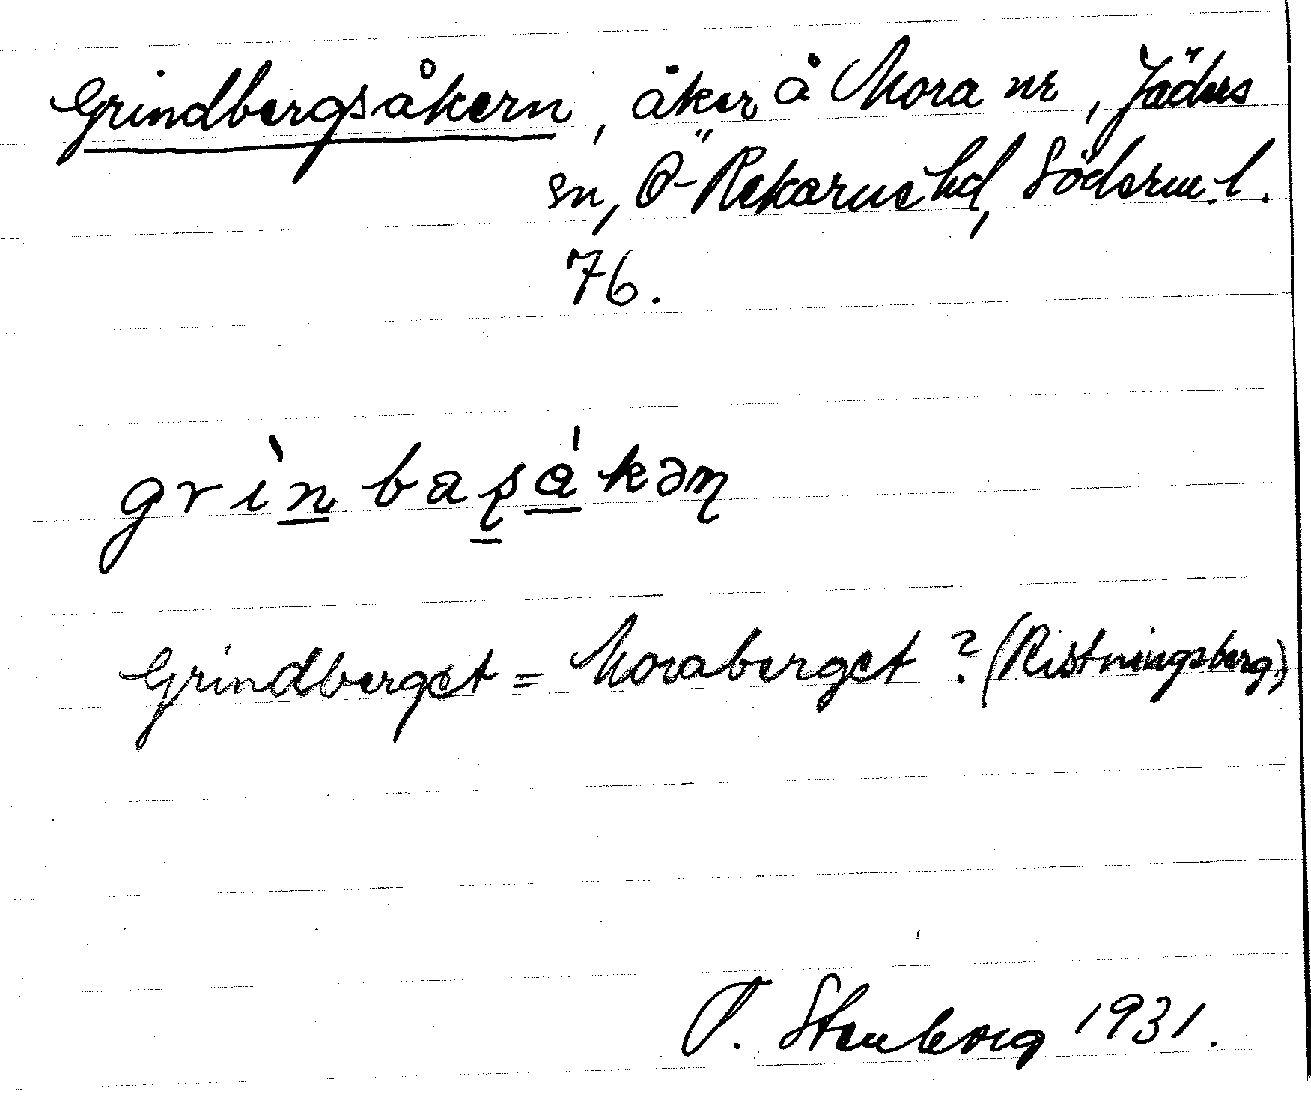 Grindbergsåkern, åker å Mora nr, Jäders
sn, Ö-Rekarne hd, Söderm. l.
76.
grìnbaʂákəɳ
Grindberget = Moraberget ? (Ristningsberg)
P. Stenborg 1931.